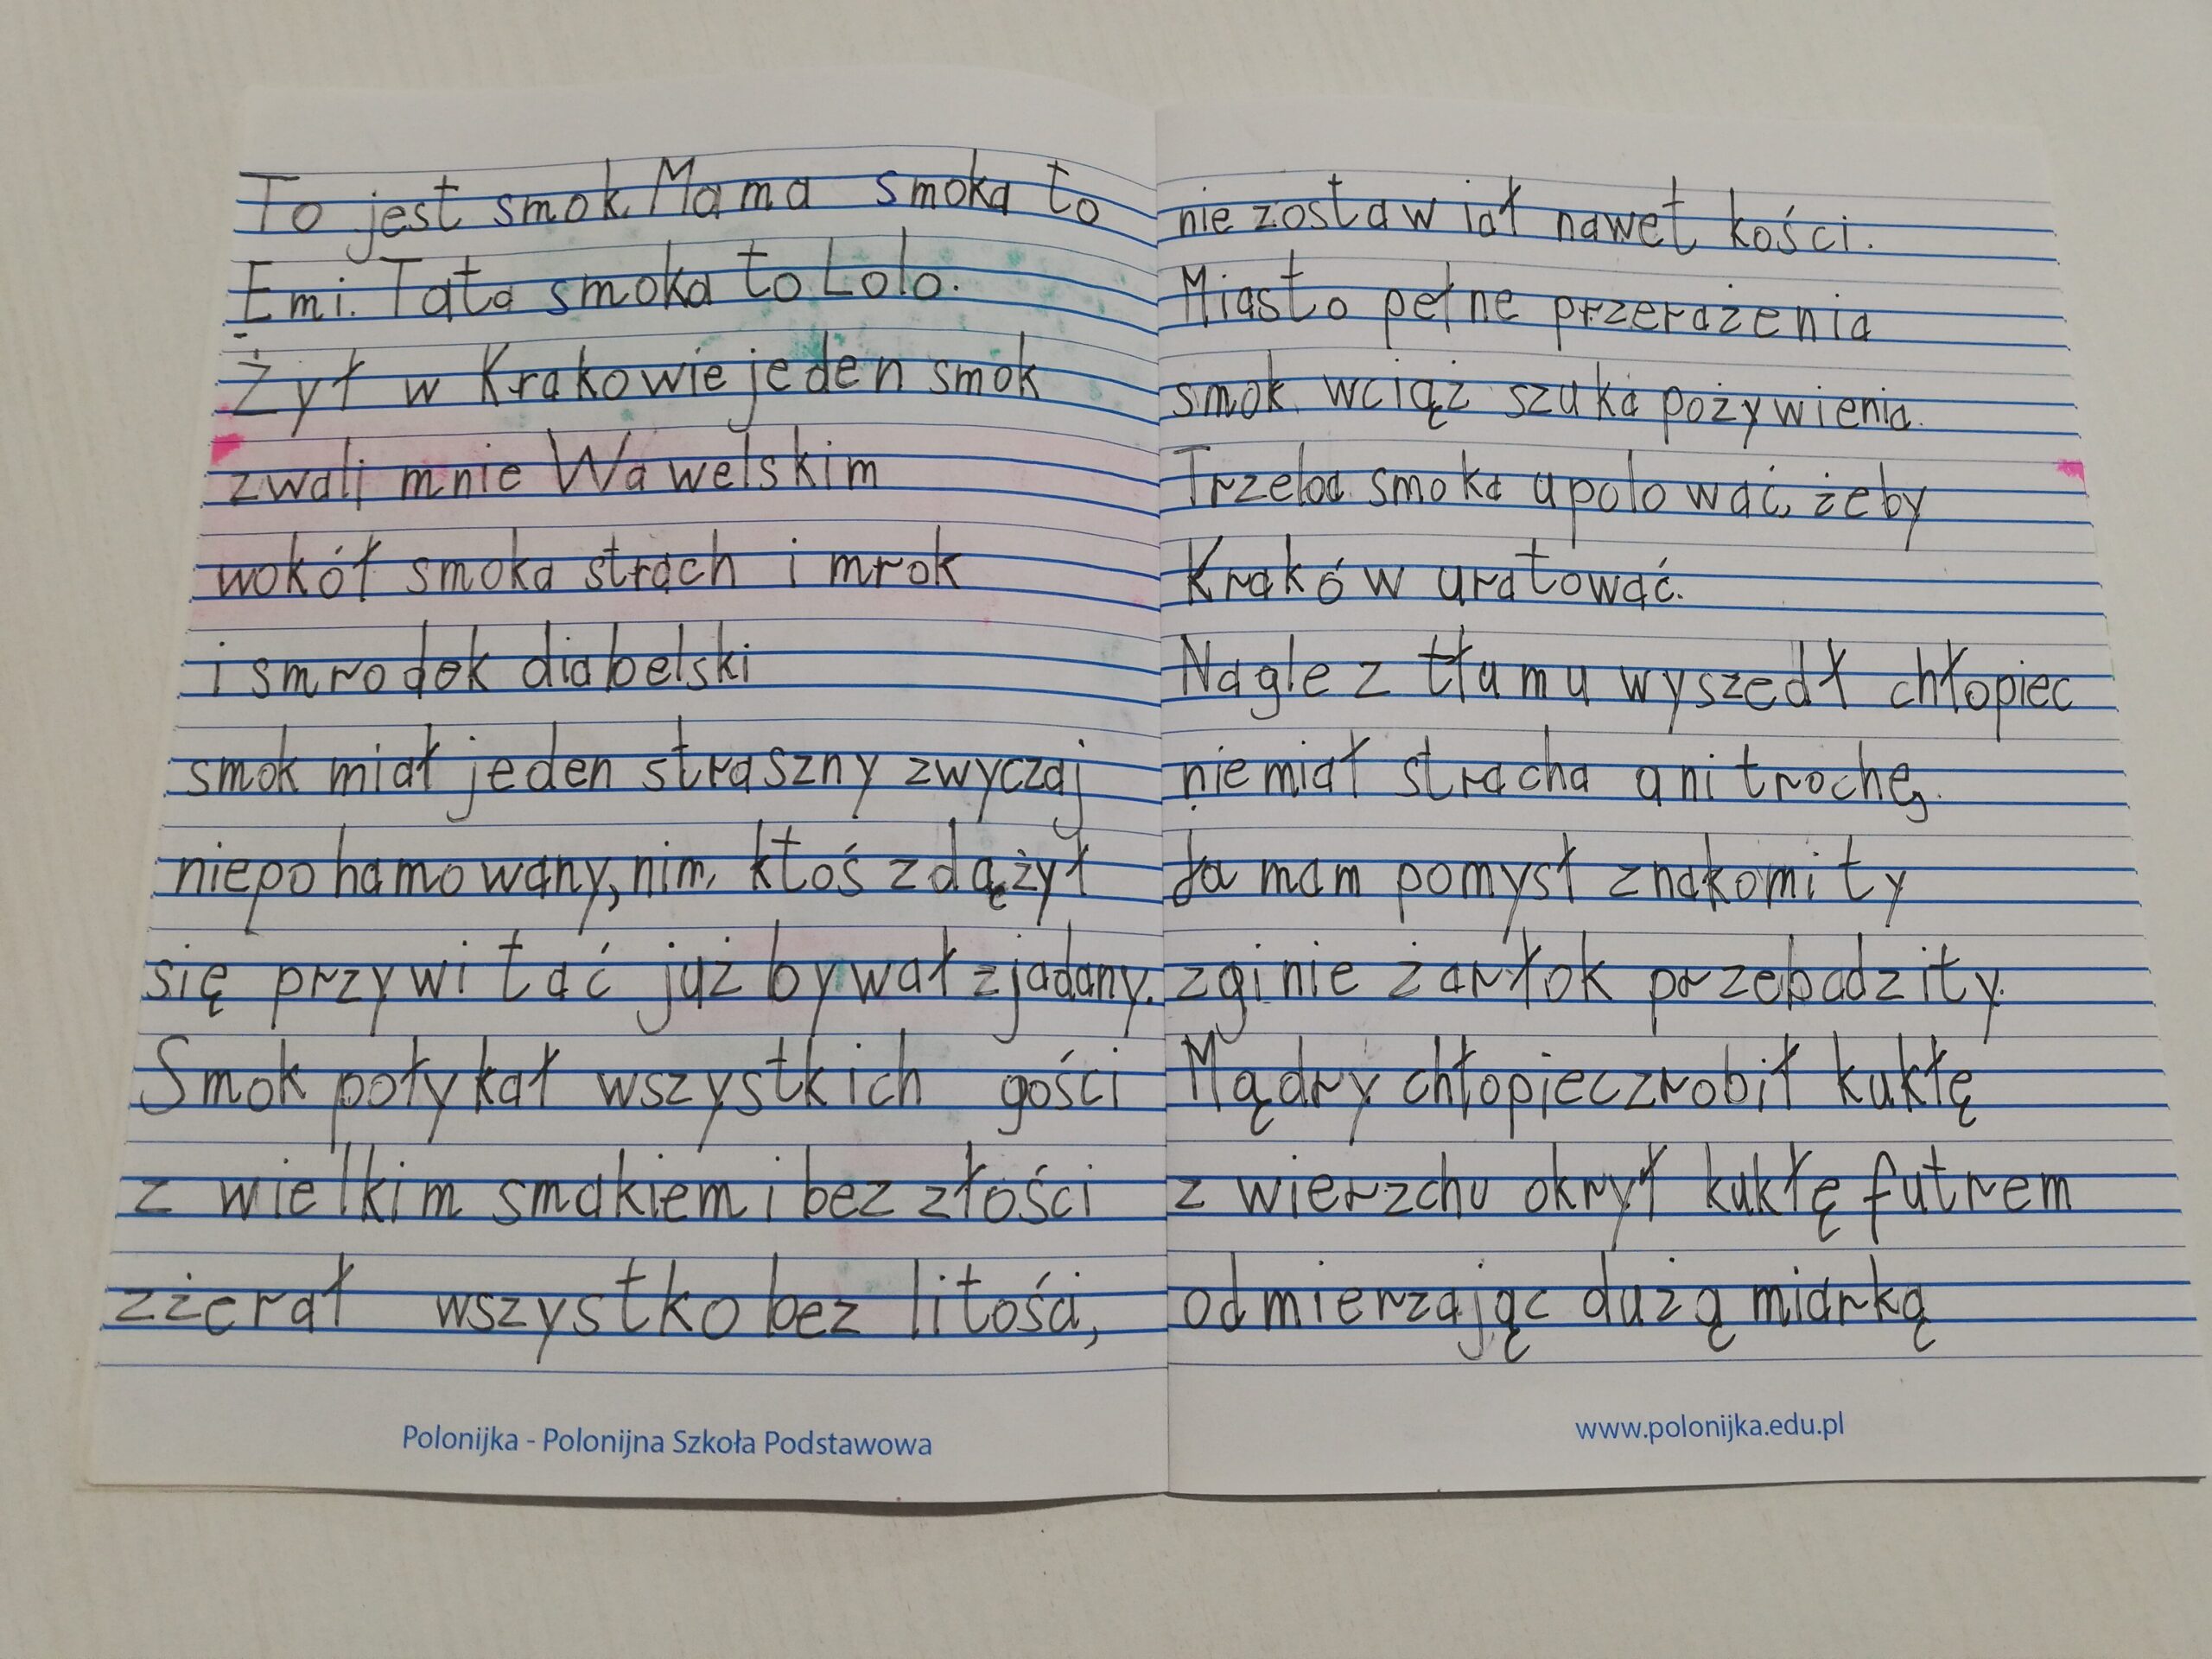 To jest smok. Mama smoka to
Emi. Tata smoka to Lolo.
Żył w Krakowie jeden smok
zwali mnie Wawelskim
wokół smoka strach i mrok
i smrodek diabelski
smok miał jeden straszny zwyczaj
niepohamowany, nim, ktoś zdążył
się przywitać już bywał zjadany.
Smok połykał wszystkich gości
z wielkim smakiem i bez złości
zżerał wszystko bez litości,
Polonijka - Polonijna Szkoła Podstawowa
nie zostawiał nawet kości.
Miasto pełne przerażenia
smok wciąż szuka pożywienia.
Trzeba smoka upolować, żeby
Kraków uratować.
Nagle z tłumu wyszedł chłopiec
nie miał stracha ani trochę.
Ja mam pomysł znakomity
zginie żarłok przebadzity.
Mądry chłopiec zrobił kukłę
z wierzchu okrył kukłę futrem
odmierzając dużą miarką
www.polonijka.edu.pl